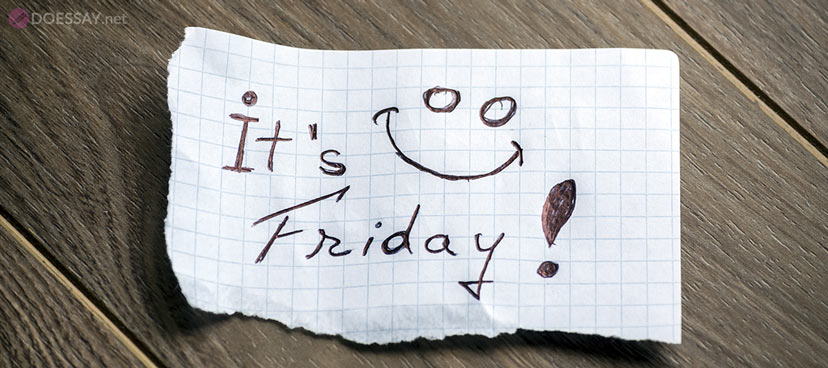 DOESSAY.net
It's
Friday!